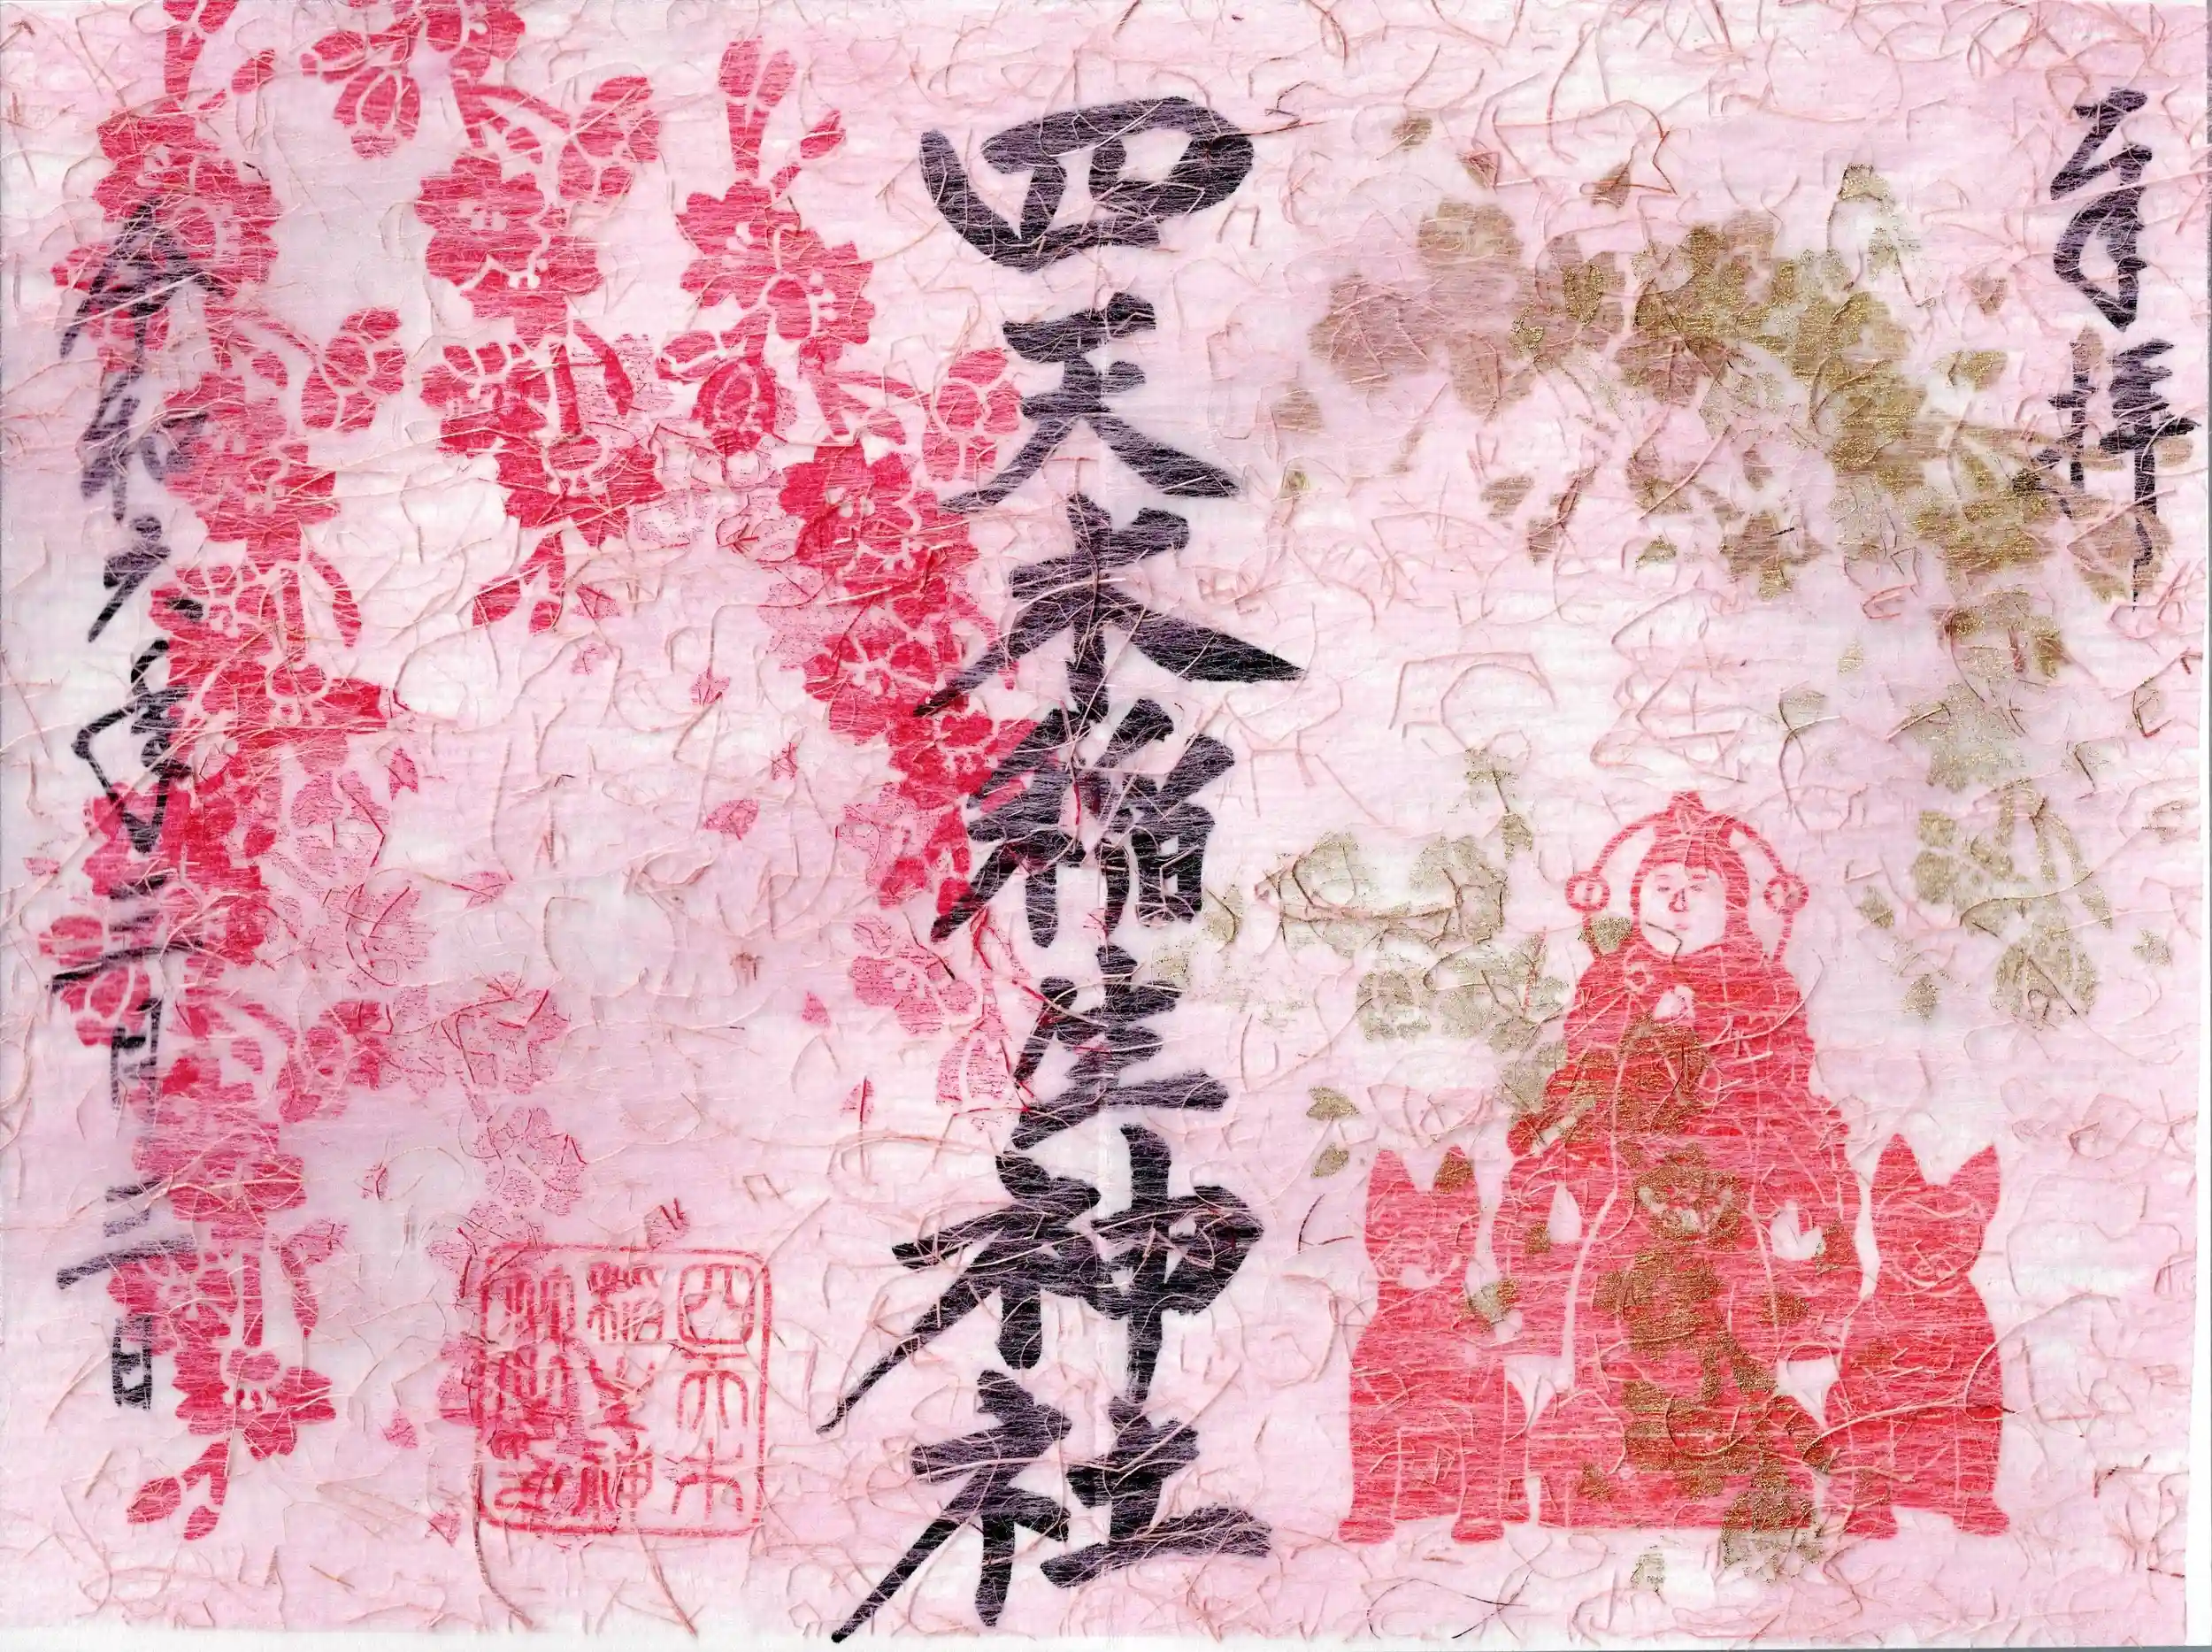 奉拝
四天木稲生神社
令和六年三月二日
四天木
稲生神